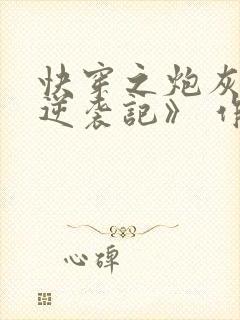 快穿之炮灰
逆袭記》
心碑